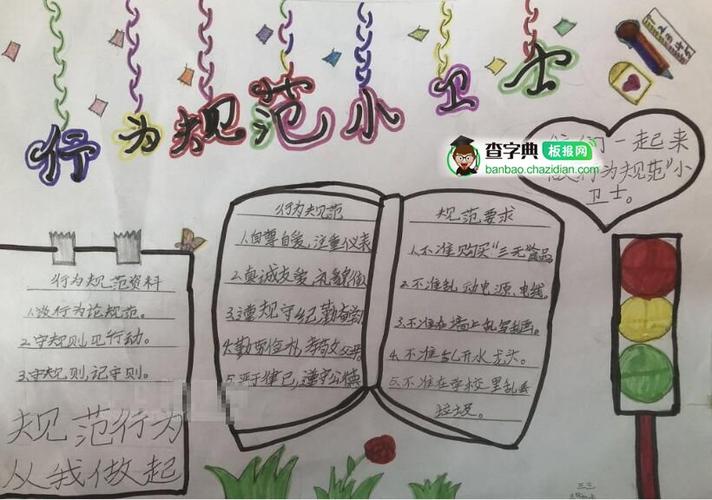 行为规范小卫士
查字典 板报网
banbao.chazidian.com
一起来
行为规范"小
卫士。
行为规范资料
1.谈行为论规范。
2.守规则见行动。
3.守规则,记守则。
规范行为
从我做起
行为规范
1.自尊自爱,注重仪表
2.真诚友爱,礼貌
3.遵规守纪,勤奋
4.勤劳俭朴,孝敬父母
5.严于律己,遵守公德
规范要求
1.不准购买"三无"食品
2.不准乱动电源、电线
3.不准在墙上乱写乱画。
4.不准乱开水龙头。
5.不准在学校里乱丢
垃圾。